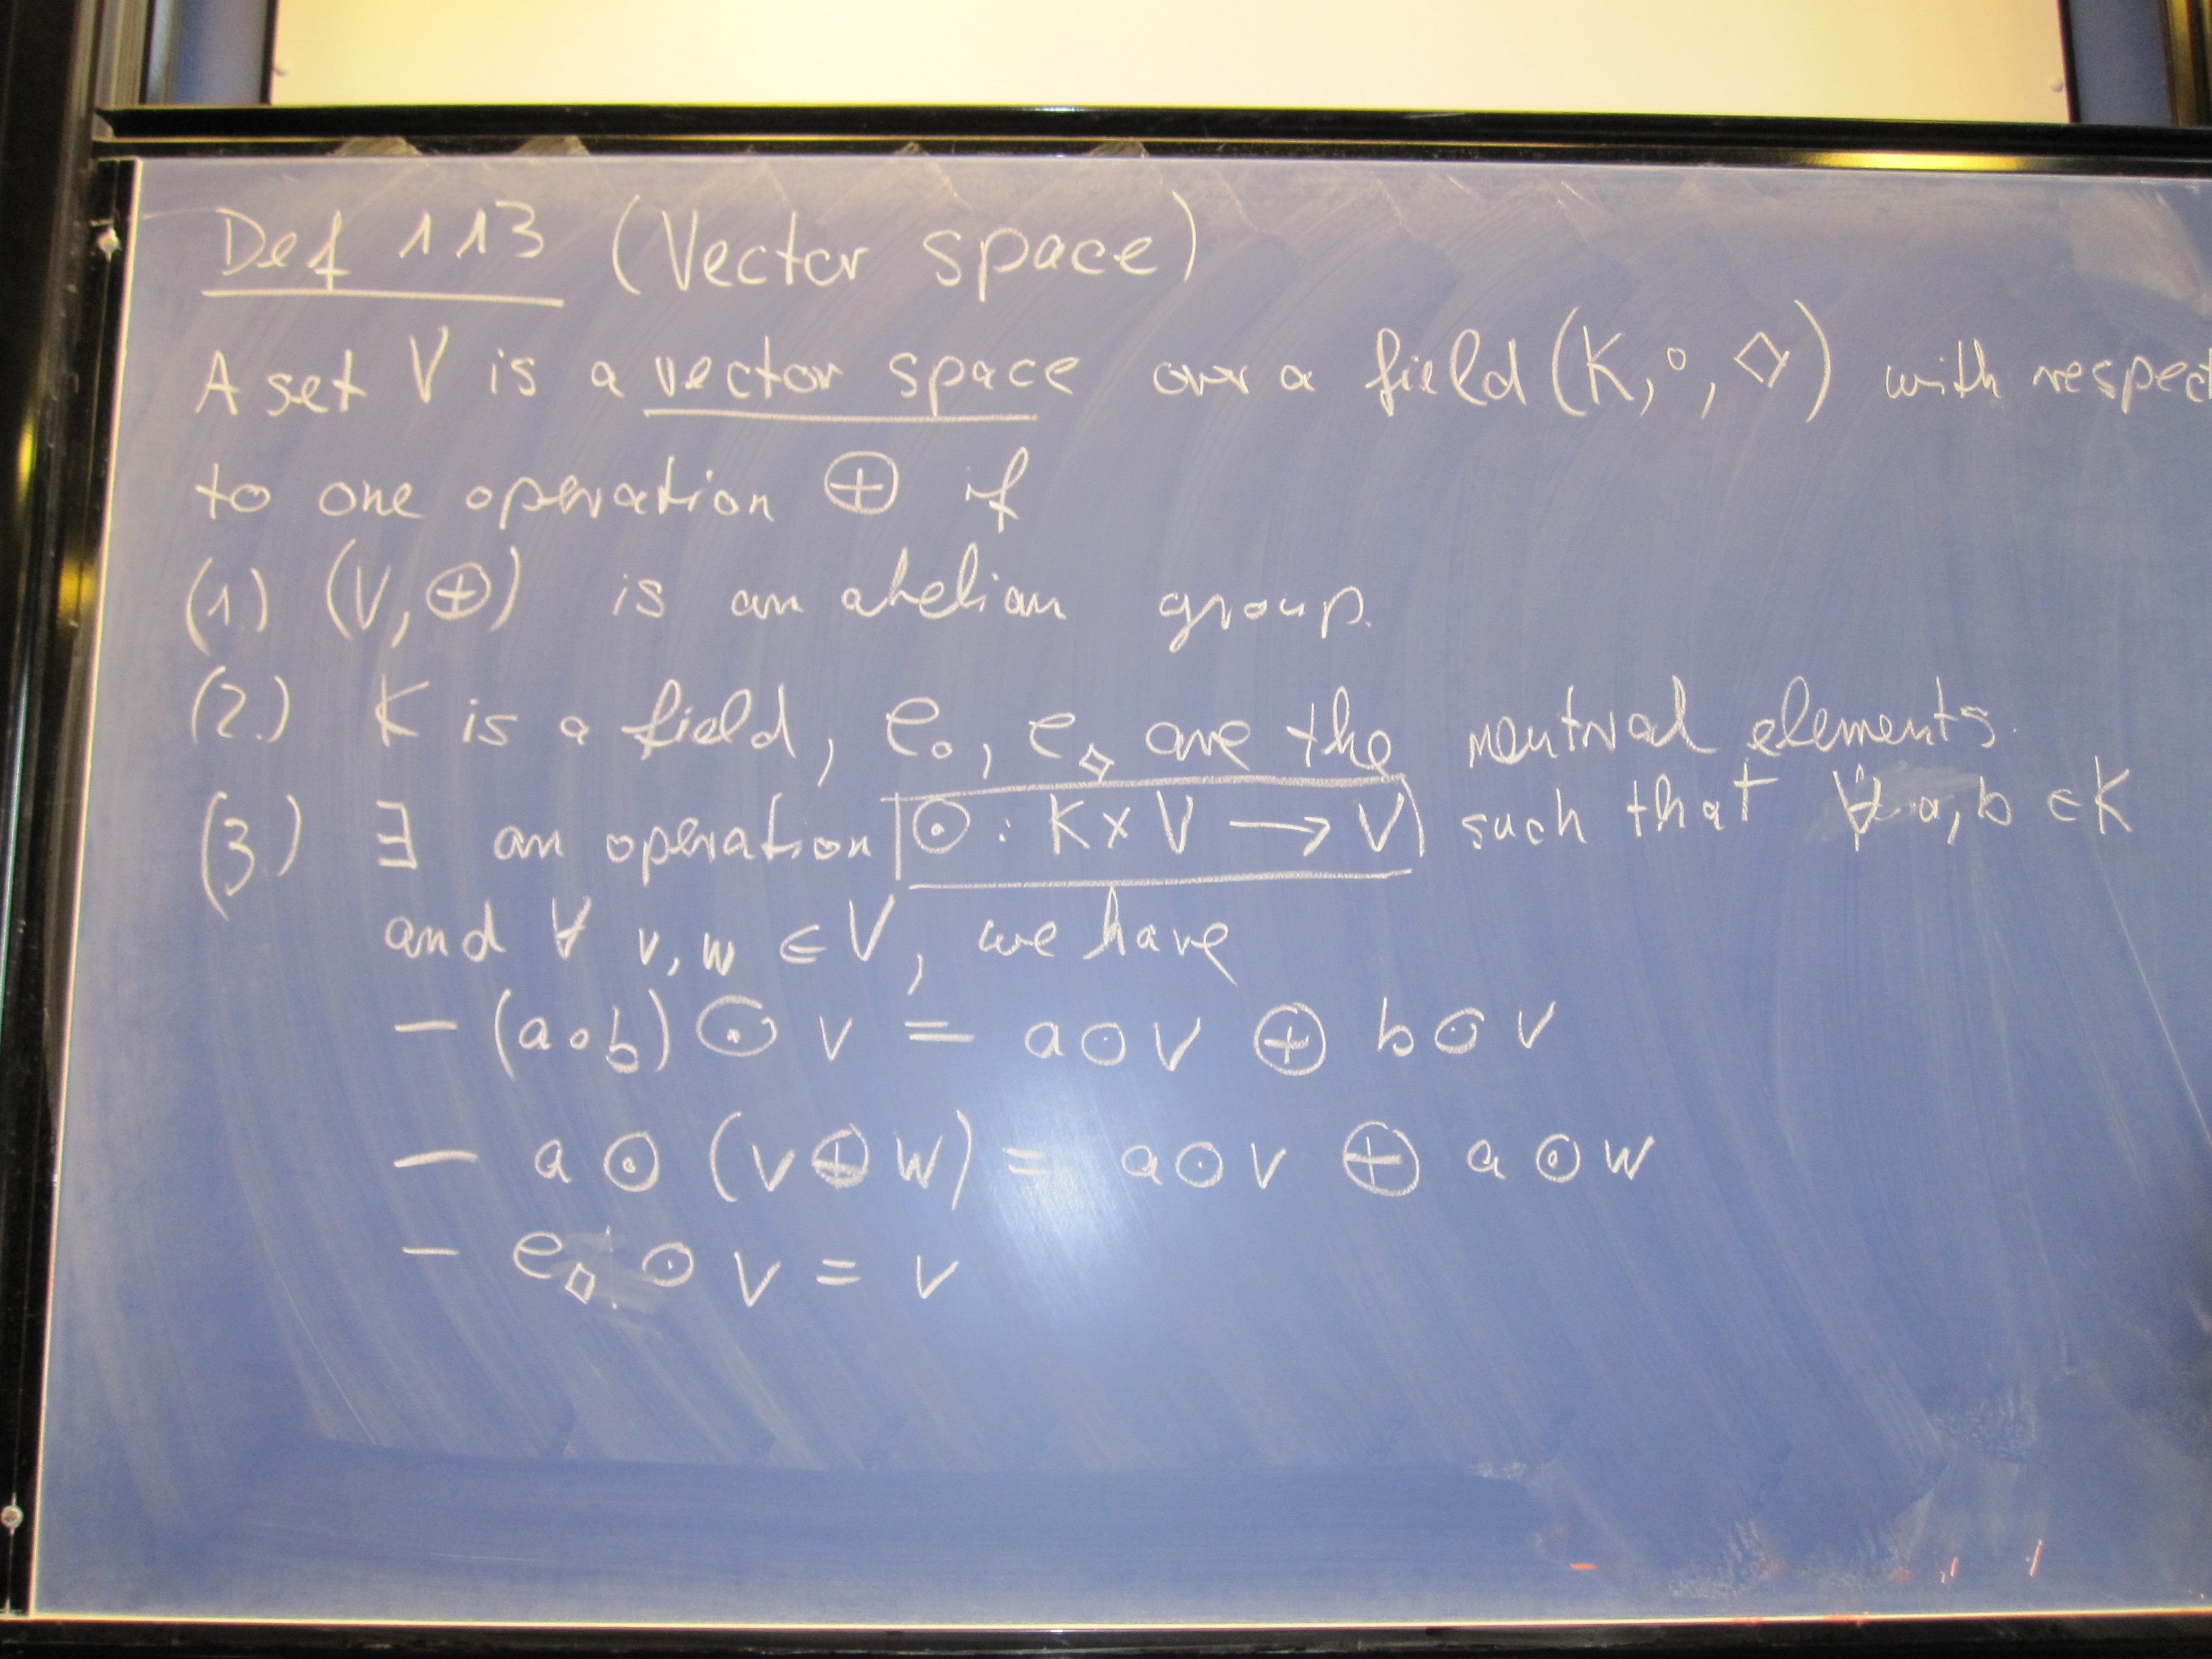 Def 113 (Vector space)
A set V is a vector space over a field (K, ∘, ◇) with respect
to one operation ⊕ if
(1.) (V, ⊕) is an abelian group.
(2.) K is a field, e∘, e◇ are the neutral elements.
(3.) ∃ an operation ⊙ : K × V → V such that ∀ a, b ∈ K
and ∀ v, w ∈ V, we have
– (a∘b) ⊙ v = a ⊙ v ⊕ b ⊙ v
– a ⊙ (v ⊕ w) = a ⊙ v ⊕ a ⊙ w
– e◇ ⊙ v = v